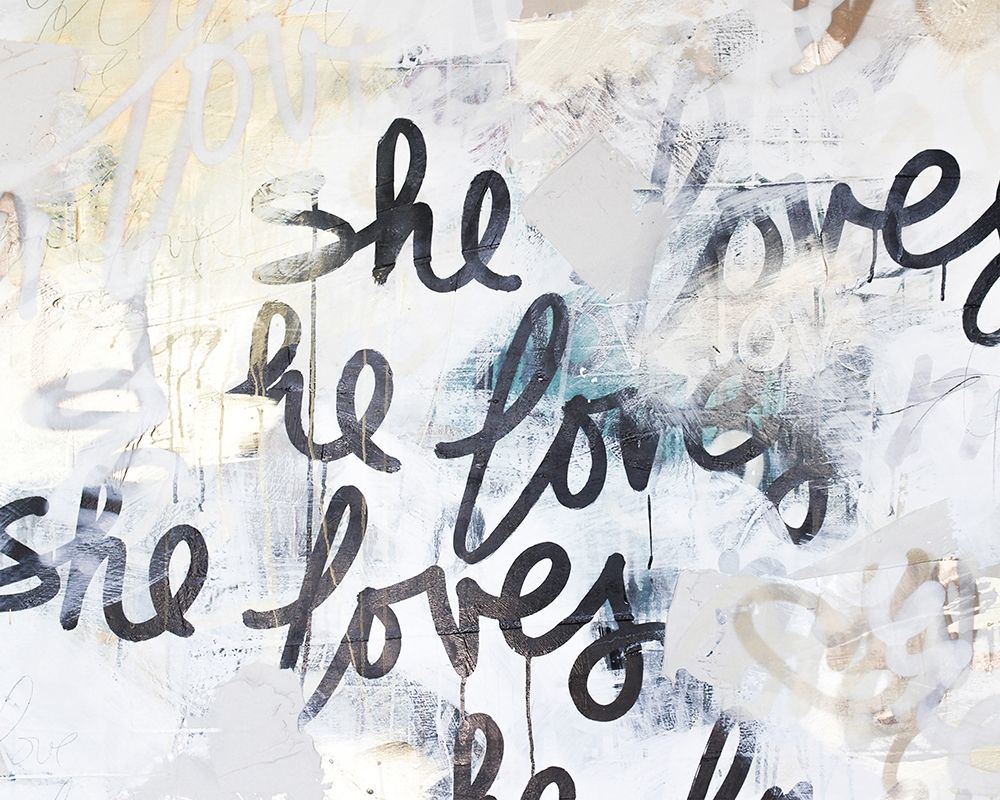 love
she loves
he loves
LOVE
she loves
love
he